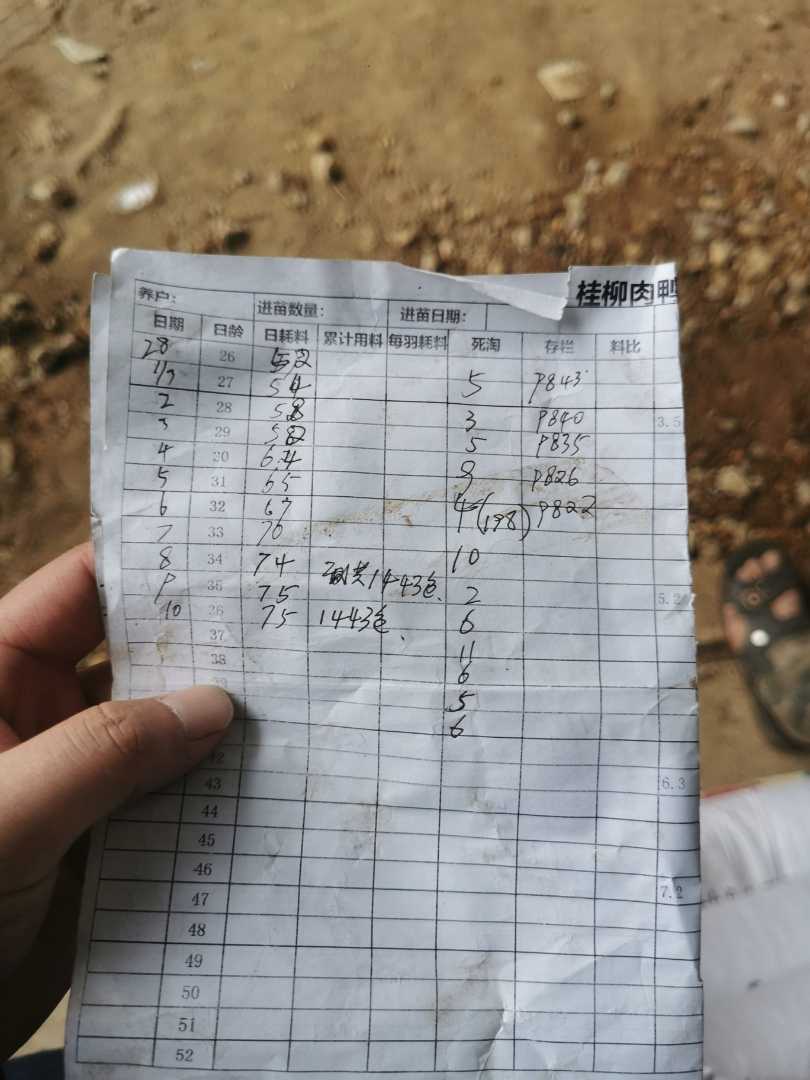 桂柳肉鸭
养户: 进苗数量: 进苗日期:
日期 日龄 日耗料 累计用料 每羽耗料 死淘 存栏 料比
28 26 52
1/3 27 54 5 9843
2 28 58 3 9840 3.5
3 29 582 5 9835
4 30 64 9 9826
5 31 65 4(198) 9822
6 32 67
7 33 70 10
8 34 74 共1443包. 2 5.2
9 35 75 6
10 36 75 1443包. 11
37 6
38 5
39 6
42
43 6.3
44
45
46
47 7.2
48
49
50
51
52